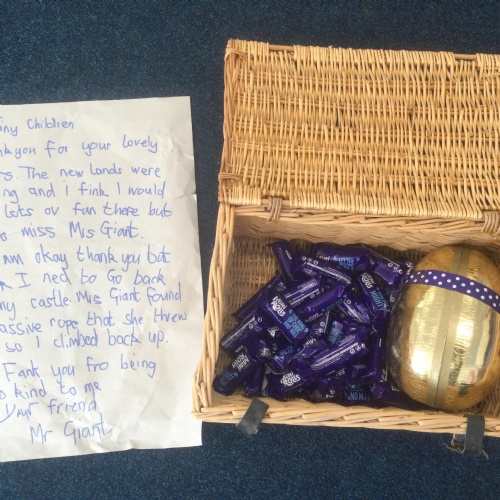 iny Children
nkyou for your lovely
rs. The new Lands were
ng and I fink I would
lots ov fun there but
miss Mis Giant.
am okay thank you but
k I ned to Go back
my castle. Mis Giant found
assive rope that she threw
so I climbed back up.
Fank you fro being
o kind to me
your friend
Mr Giant